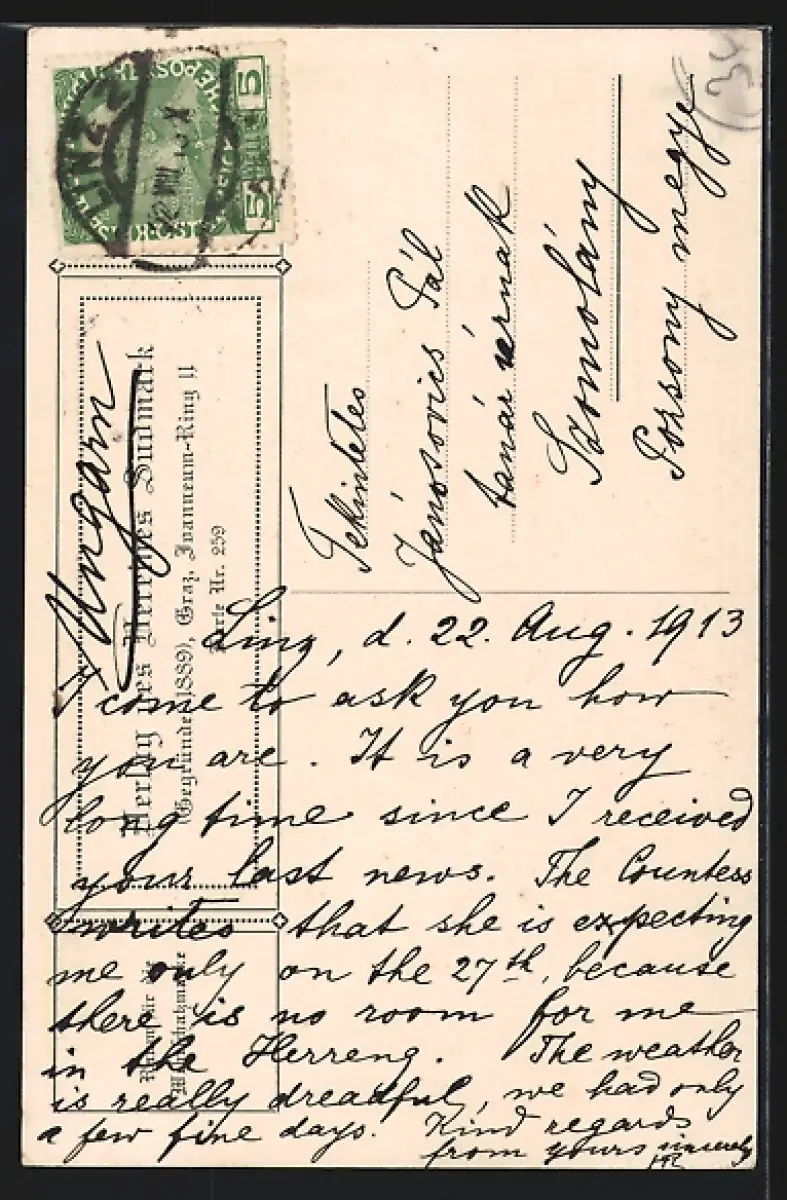 (34
5 5
HELLER
LINZ 2
22 VIII 13 X
Ungarn
Verlag des Vereines Südmark
(Gegründet 1889), Graz, Joanneum-Ring 11
Karte Nr. 259
Raum für die
Tekintetes
Jánosovics Pál
tanár úrnak
Szomolány
Pozsony megye
Linz, d. 22. Aug. 1913
I come to ask you how
you are. It is a very
long time since I received
your last news. The Countess
writes that she is expecting
me only on the 27th, because
there is no room for me
in the Herreng. The weather
is really dreadful, we had only
a few fine days. Kind regards
from yours sincerely